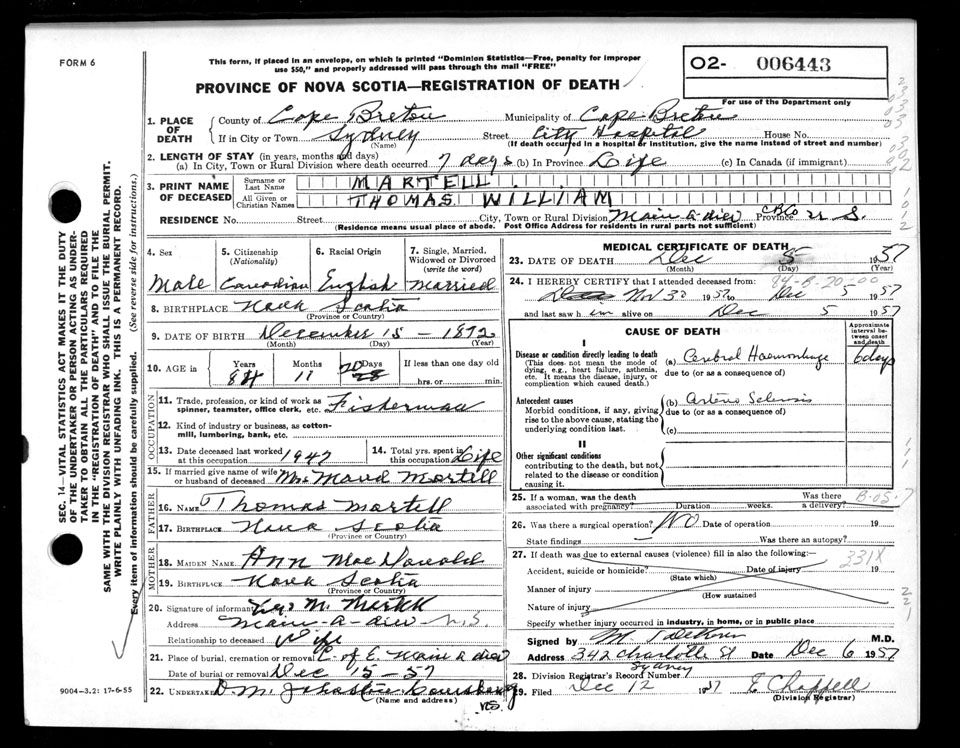 FORM 6
This form, if placed in an envelope, on which is printed "Dominion Statistics—Free, penalty for improper
use $50," and properly addressed will pass through the mail "FREE"
O2- 006443
PROVINCE OF NOVA SCOTIA—REGISTRATION OF DEATH
For use of the Department only
1. PLACE OF DEATH County of Cape Breton Municipality of Cape Breton
If in City or Town Sydney Street City Hospital House No.
(Name) (If death occurred in a hospital or institution, give the name instead of street and number)
2. LENGTH OF STAY (in years, months and days)
(a) In City, Town or Rural Division where death occurred 7 days (b) In Province Life (c) In Canada (if immigrant)
3. PRINT NAME OF DECEASED Surname or Last Name MARTELL
All Given or Christian Names THOMAS WILLIAM
RESIDENCE No. Street City, Town or Rural Division Main-a-dieu CB Co Province N S.
(Residence means usual place of abode. Post Office Address for residents in rural parts not sufficient)
4. Sex 5. Citizenship (Nationality) 6. Racial Origin 7. Single, Married, Widowed or Divorced (write the word)
Male Canadian English Married
8. BIRTHPLACE Nova Scotia
(Province or Country)
9. DATE OF BIRTH December 15 - 1872
(Month) (Day) (Year)
10. AGE in Years Months Days If less than one day old
84 11 20 28 hrs. or min.
OCCUPATION
11. Trade, profession, or kind of work as spinner, teamster, office clerk, etc. Fisherman
12. Kind of industry or business, as cotton-mill, lumbering, bank, etc.
13. Date deceased last worked at this occupation 1947 14. Total yrs. spent in this occupation Life
15. If married give name of wife or husband of deceased Mrs Maud Martell
FATHER
16. NAME Thomas Martell
17. BIRTHPLACE Nova Scotia
(Province or Country)
MOTHER
18. MAIDEN NAME Ann MacDonald
19. BIRTHPLACE Nova Scotia
(Province or Country)
20. Signature of informant M.
Address Main-a-dieu N.S
Relationship to deceased Wife
21. Place of burial, cremation or removal C. of E. Main a dieu
Date of burial or removal Dec 15-57
22. UNDERTAKER D. M. Johnston Louisburg
(Name and address) NS.
9004—3.21: 17-6-55
SEC. 14—VITAL STATISTICS ACT MAKES IT THE DUTY
OF THE UNDERTAKER OR PERSON ACTING AS UNDER-
TAKER TO OBTAIN ALL THE PARTICULARS REQUIRED
IN THE "REGISTRATION OF DEATH" AND TO FILE THE
SAME WITH THE DIVISION REGISTRAR WHO SHALL ISSUE THE BURIAL PERMIT.
WRITE PLAINLY WITH UNFADING INK. THIS IS A PERMANENT RECORD.
Every item of information should be carefully supplied. (See reverse side for instructions.)
MEDICAL CERTIFICATE OF DEATH
23. DATE OF DEATH Dec 5 1957
(Month) (Day) (Year)
24. I HEREBY CERTIFY that I attended deceased from:
30 1957 to Dec 5 1957
and last saw him alive on Dec 5 1957
CAUSE OF DEATH
Approximate interval between onset and death
I
Disease or condition directly leading to death (a) Cerebral Haemorrhage 6 days
(This does not mean the mode of dying, e.g., heart failure, asthenia, etc. It means the disease, injury, or complication which caused death.)
due to (or as a consequence of)
Antecedent causes (b)
Morbid conditions, if any, giving rise to the above cause, stating the underlying condition last.
due to (or as a consequence of)
(c)
II
Other significant conditions
contributing to the death, but not related to the disease or condition causing it.
25. If a woman, was the death associated with pregnancy? Duration weeks. Was there a delivery?
26. Was there a surgical operation? NO Date of operation 19
State findings Was there an autopsy?
27. If death was due to external causes (violence) fill in also the following:— 331X
Accident, suicide or homicide? Date of injury 19
(State which)
Manner of injury
(How sustained
Nature of injury
Specify whether injury occurred in industry, in home, or in public place
Signed by M.D.
Address 342 Charlotte St Date Dec 6 1957
Sydney
28. Division Registrar's Record Number
29. Filed Dec 12 1957 E Chappell
(Division Registrar)